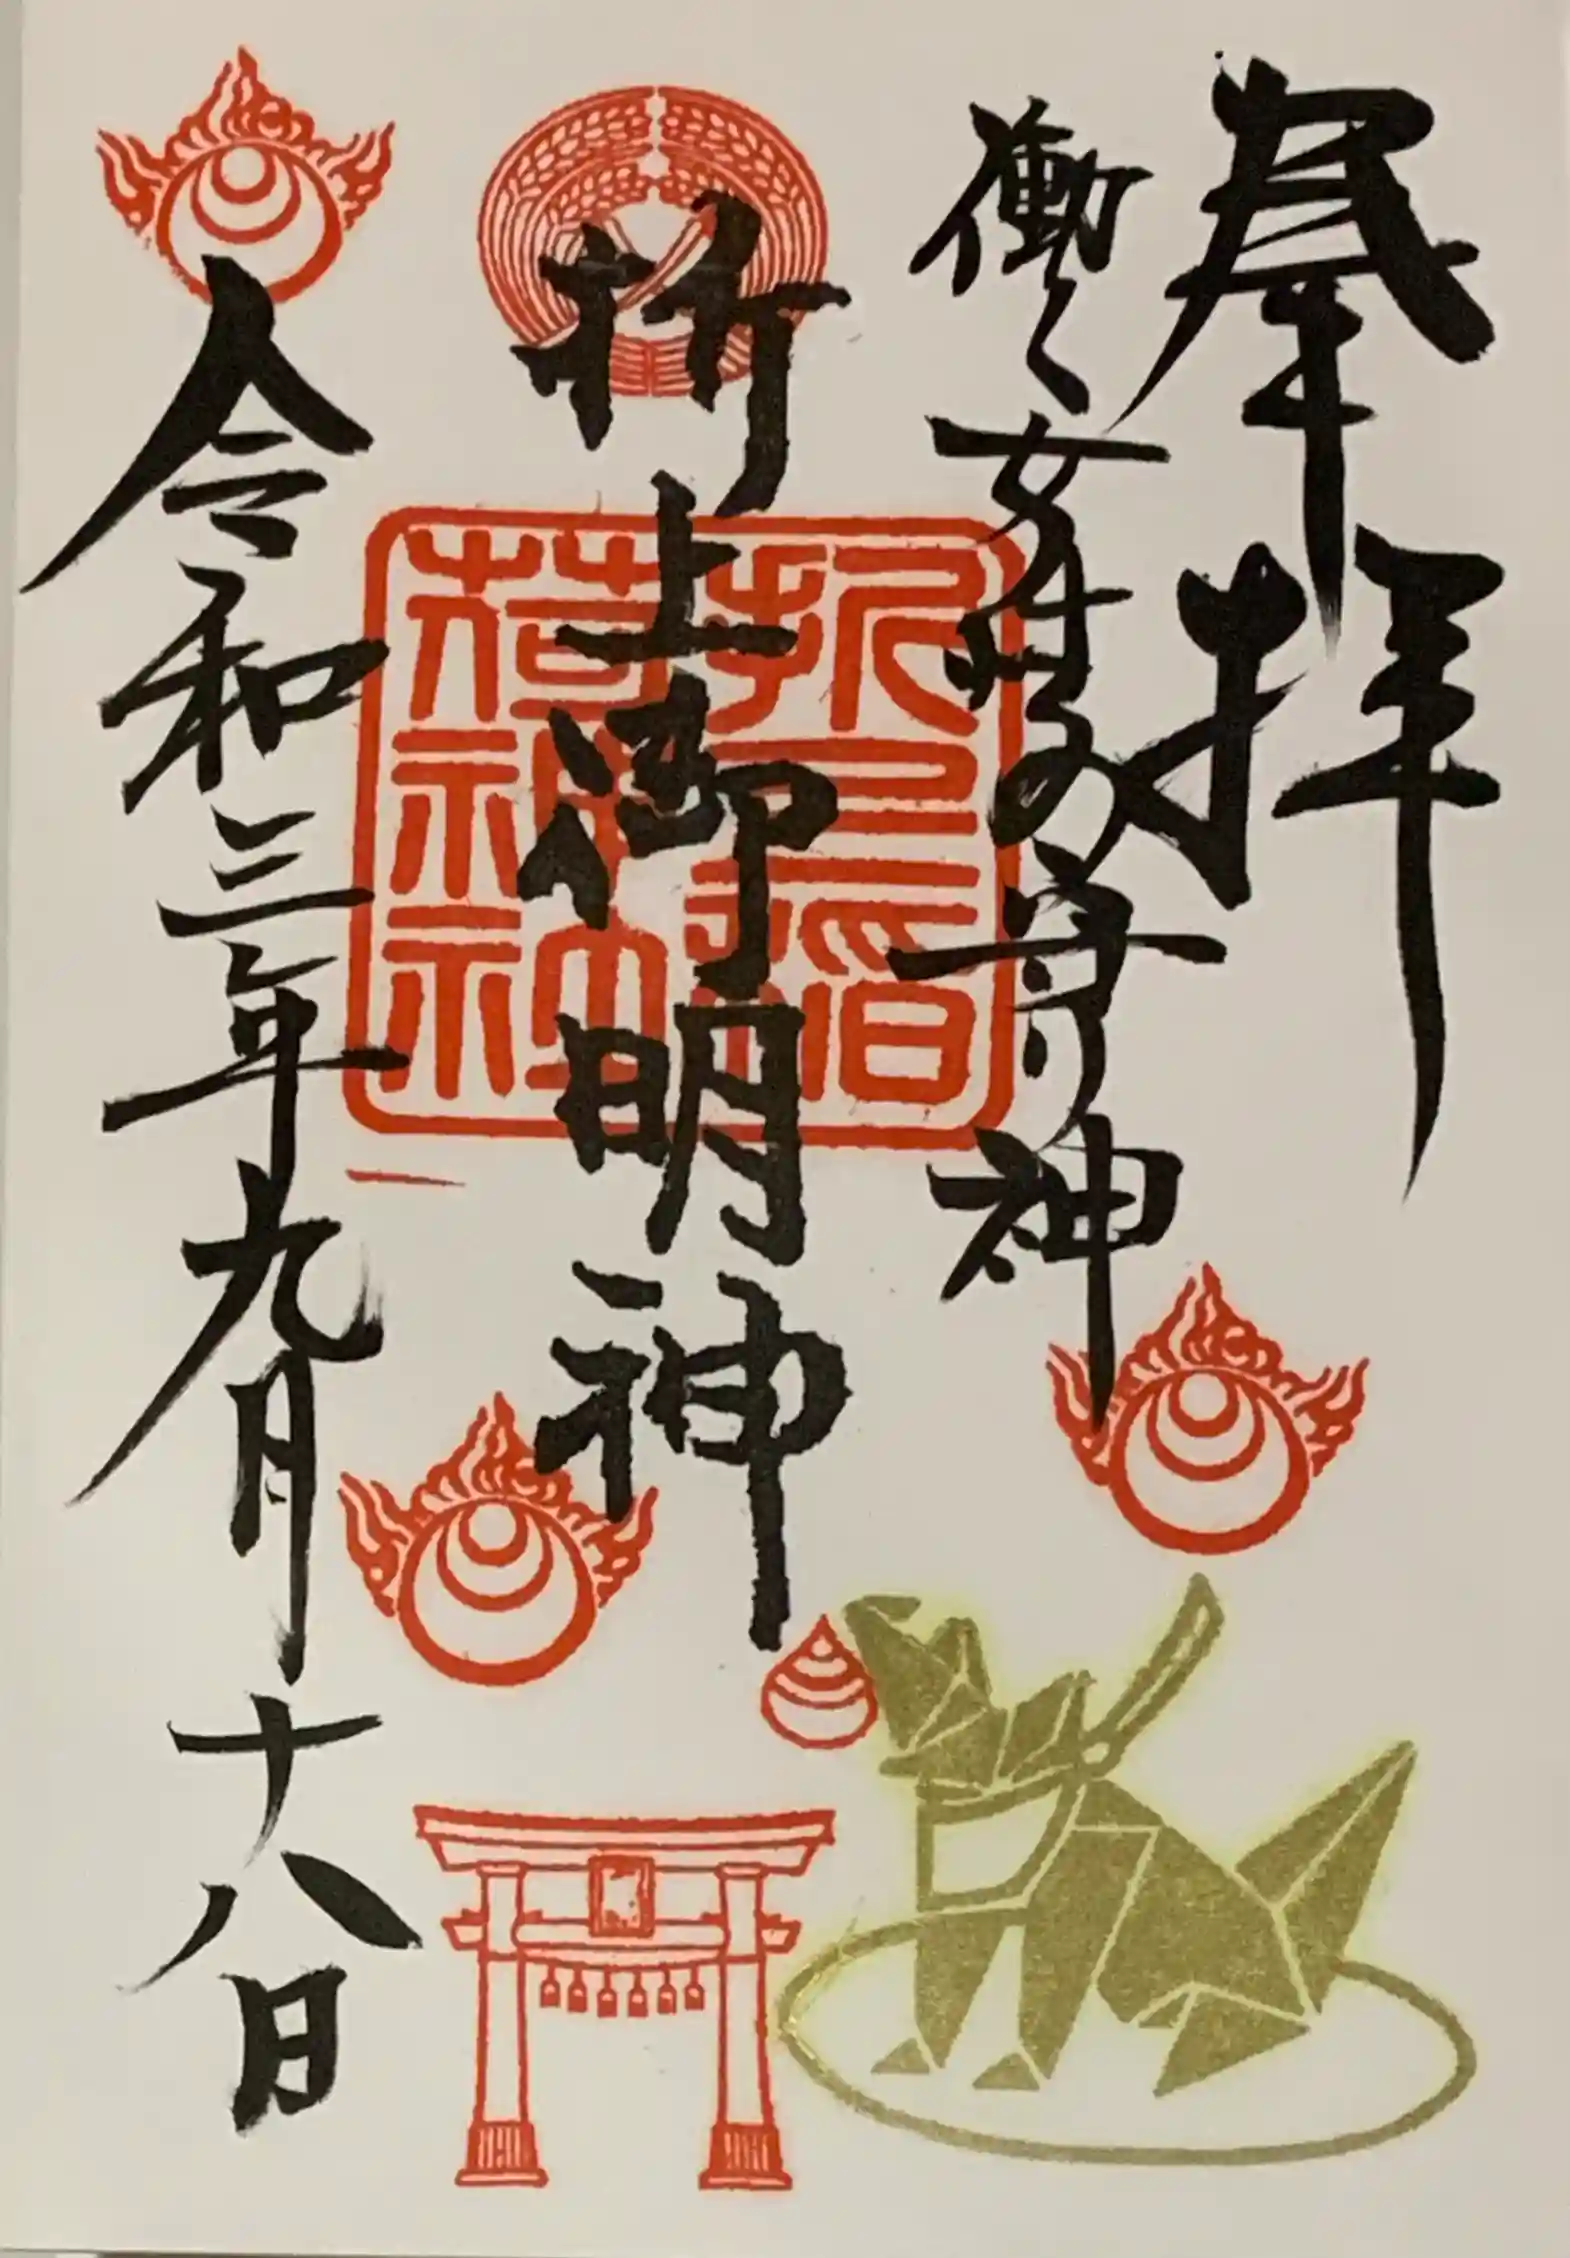 奉拝
働く女性の守神
折上御明神
折上稲荷神社
令和三年九月十八日